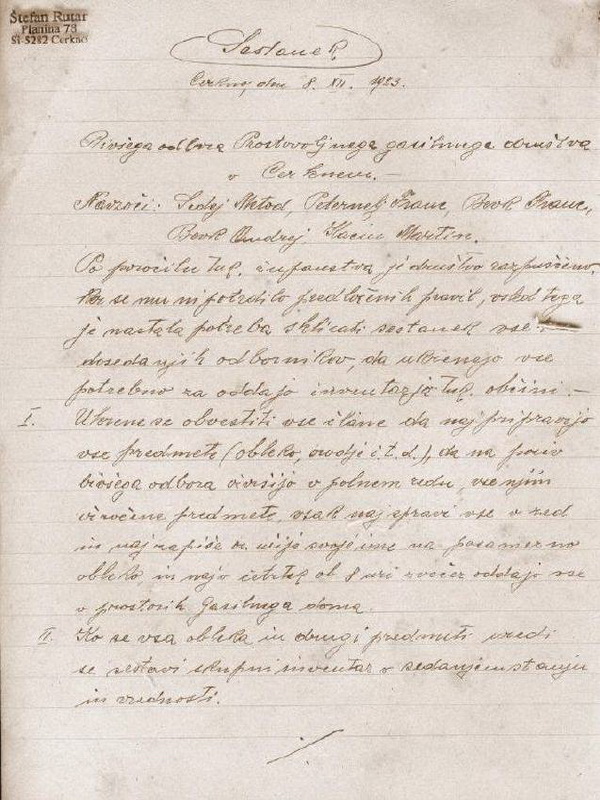 Štefan Rutar
Planina 78
SI-5282 Cerkno
Sestanek
Cerkno, dne 8. XII. 1923.
Bivšega odbora Prostovoljnega gasilnega društva
v Cerknem. —
Navzoči: Sedej Metod, Peternelj Franc, Bevk Franc,
Bevk Andrej Kacin Martin.
Po poročilu tuk. županstva je društvo razpuščeno.
Ker se mu ni potrdilo predloženih pravil, vsled tega
je nastala potreba sklicati sestanek vse
dosedanjih odbornikov, da ukrenejo vse
potrebno za oddajo inventarja tuk. občini. —
I. Ukrene se obvestiti vse člane da naj pripravijo
vse predmete (obleko, orodje i. t. d.), da na poziv
bivšega odbora izvršijo v polnem redu, vse njim
izročene predmete, vsak naj spravi vse v red
in naj zapiše svoje ime na posamezno
obleko in naj četrtek ob 8 uri zvečer oddajo vse
v prostorih Gasilnega doma.
II. Ko se vsa obleka in drugi predmeti uredi
se sestavi skupni inventar o sedanjem stanju
in vrednosti.